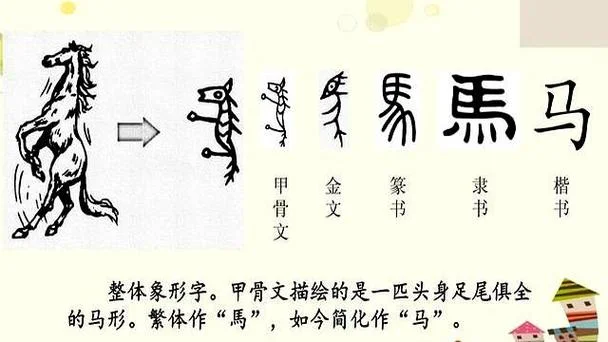 馬
馬
马
甲骨文
金文
篆书
隶书
楷书
整体象形字。甲骨文描绘的是一匹头身足尾俱全
的马形。繁体作“馬”，如今简化作“马”。